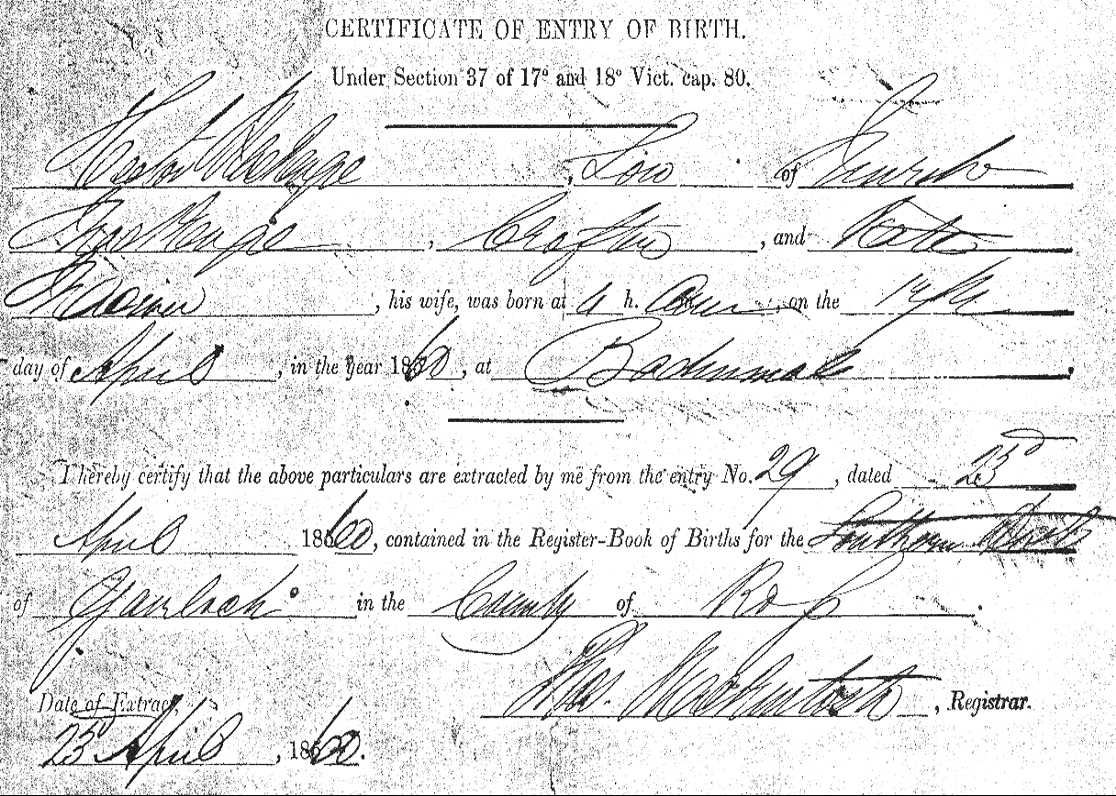 CERTIFICATE OF ENTRY OF BIRTH.
Under Section 37 of 17° and 18° Vict. cap. 80.
Hector McKenzie, Son of
McKenzie, Crofter, and Kate
, his wife, was born at 4 h. am, on the
day of April, in the year 1860, at
I hereby certify that the above particulars are extracted by me from the entry No. 29, dated 23d
April 1860, contained in the Register-Book of Births for the Southern District
of Gairloch in the County of Ross.
Thos. Mackintosh, Registrar.
Date of Extract,
23 April, 1860.